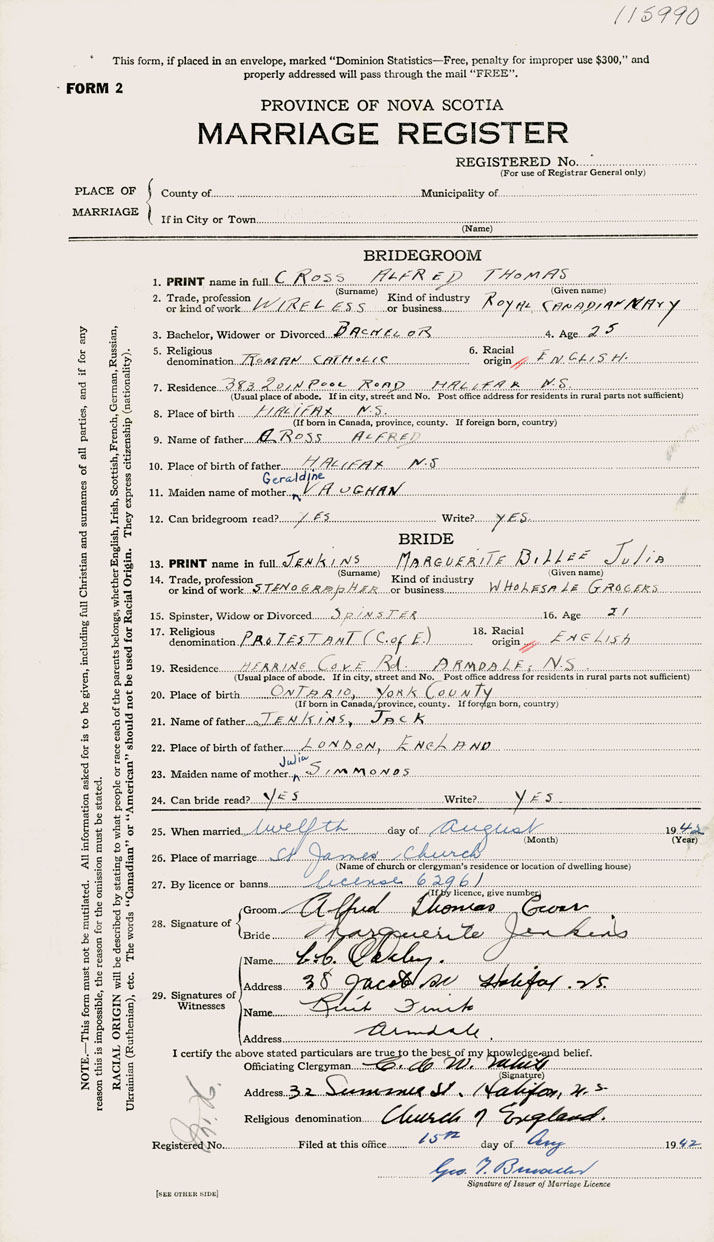 115990
This form, if placed in an envelope, marked "Dominion Statistics—Free, penalty for improper use $300," and
properly addressed will pass through the mail "FREE".
FORM 2
PROVINCE OF NOVA SCOTIA
MARRIAGE REGISTER
REGISTERED No.
(For use of Registrar General only)
PLACE OF MARRIAGE
County of Municipality of
If in City or Town
(Name)
BRIDEGROOM
1. PRINT name in full CROSS ALFRED THOMAS
(Surname) (Given name)
2. Trade, profession or kind of work WIRELESS Kind of industry or business ROYAL CANADIAN NAVY
3. Bachelor, Widower or Divorced BACHELOR 4. Age 25
5. Religious denomination ROMAN CATHOLIC 6. Racial origin ENGLISH.
7. Residence 383 ROAD HALIFAX N.S.
(Usual place of abode. If in city, street and No. Post office address for residents in rural parts not sufficient)
8. Place of birth HALIFAX N.S.
(If born in Canada, province, county. If foreign born, country)
9. Name of father CROSS ALFRED
10. Place of father HALIFAX N.S
Geraldine
11. Maiden name of mother VAUGHAN
12. Can bridegroom read? YES Write? YES.
BRIDE
13. PRINT name in full JENKINS MARGUERITE BILLEE JULIA
(Surname) (Given name)
14. Trade, profession or kind of work STENOGRAPHER Kind of industry or business WHOLESALE GROCERS
15. Spinster, Widow or Divorced SPINSTER 16. Age 21
17. Religious denomination PROTESTANT (C. of E.) 18. Racial origin ENGLISH
19. Residence HERRING COVE Rd. ARMDALE, N.S.
(Usual place of abode. If in city, street and No. Post office address for residents in rural parts not sufficient)
20. Place of birth ONTARIO, YORK COUNTY
(If born in Canada, province, county. If foreign born, country)
21. Name of father JENKINS, JACK
22. Place of birth of father LONDON, ENGLAND
Julia
23. Maiden name of mother SIMMONDS
24. Can bride read? YES Write? YES.
25. When married twelfth day of August 1942
(Month) (Year)
26. Place of marriage St James Church
(Name of church or clergyman's residence or location of dwelling house)
27. By licence or banns license 62961
(If by licence, give number)
28. Signature of Groom Alfred Thomas
Bride Marguerite Jenkins
29. Signatures of Witnesses
Name Oakley.
Address 38 Jacob St Halifax N.S.
Name
Address Armdale.
I certify the above stated particulars are true to the best of my knowledge and belief.
Officiating Clergyman C. W.
(Signature)
Address 32 Summer St. Halifax, N.S
Religious denomination Church of England.
Registered No. Filed at this office 15th day of Aug 1942
Geo. T.
Signature of Issuer of Marriage Licence
[SEE OTHER SIDE]
NOTE.—This form must not be mutilated. All information asked for is to be given, including full Christian and surnames of all parties, and if for any
reason this is impossible, the reason for the omission must be stated.
RACIAL ORIGIN will be described by stating to what people or race each of the parents belongs, whether English, Irish, Scottish, French, German, Russian,
Ukrainian (Ruthenian), etc. The words "Canadian" or "American" should not be used for Racial Origin. They express citizenship (nationality).